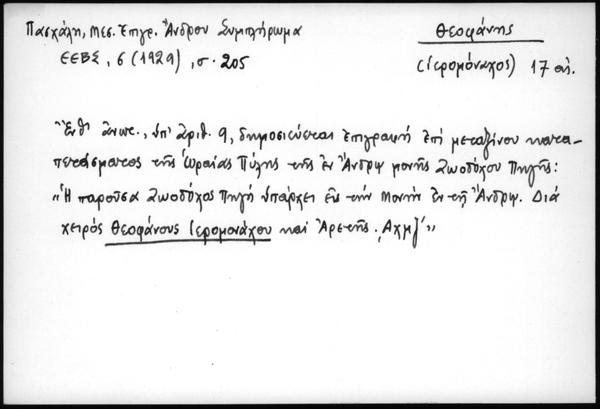 Πασχάλη, Μεσ. Ἐπιγρ. Ἄνδρου Συμπλήρωμα
ΕΕΒΣ, 6 (1929), σ. 205
Θεοφάνης
(ἱερομόναχος) 17 αἰ.
Ἔνθ' ἀνωτ., ὑπ' ἀριθ. 9, δημοσιεύεται ἐπιγραφή ἐπί μεταξίνου κατα-
πετάσματος τῆς Ὡραίας Πύλης τῆς ἐν Ἄνδρῳ μονῆς Ζωοδόχου Πηγῆς:
«Ἡ παροῦσα Ζωοδόχος Πηγή ὑπάρχει εἰς τήν Μονήν ἐν τῇ Ἄνδρῳ. Διά
χειρός Θεοφάνους Ἱερομονάχου καί Ἀρετῆς. ͵αχμζ'»